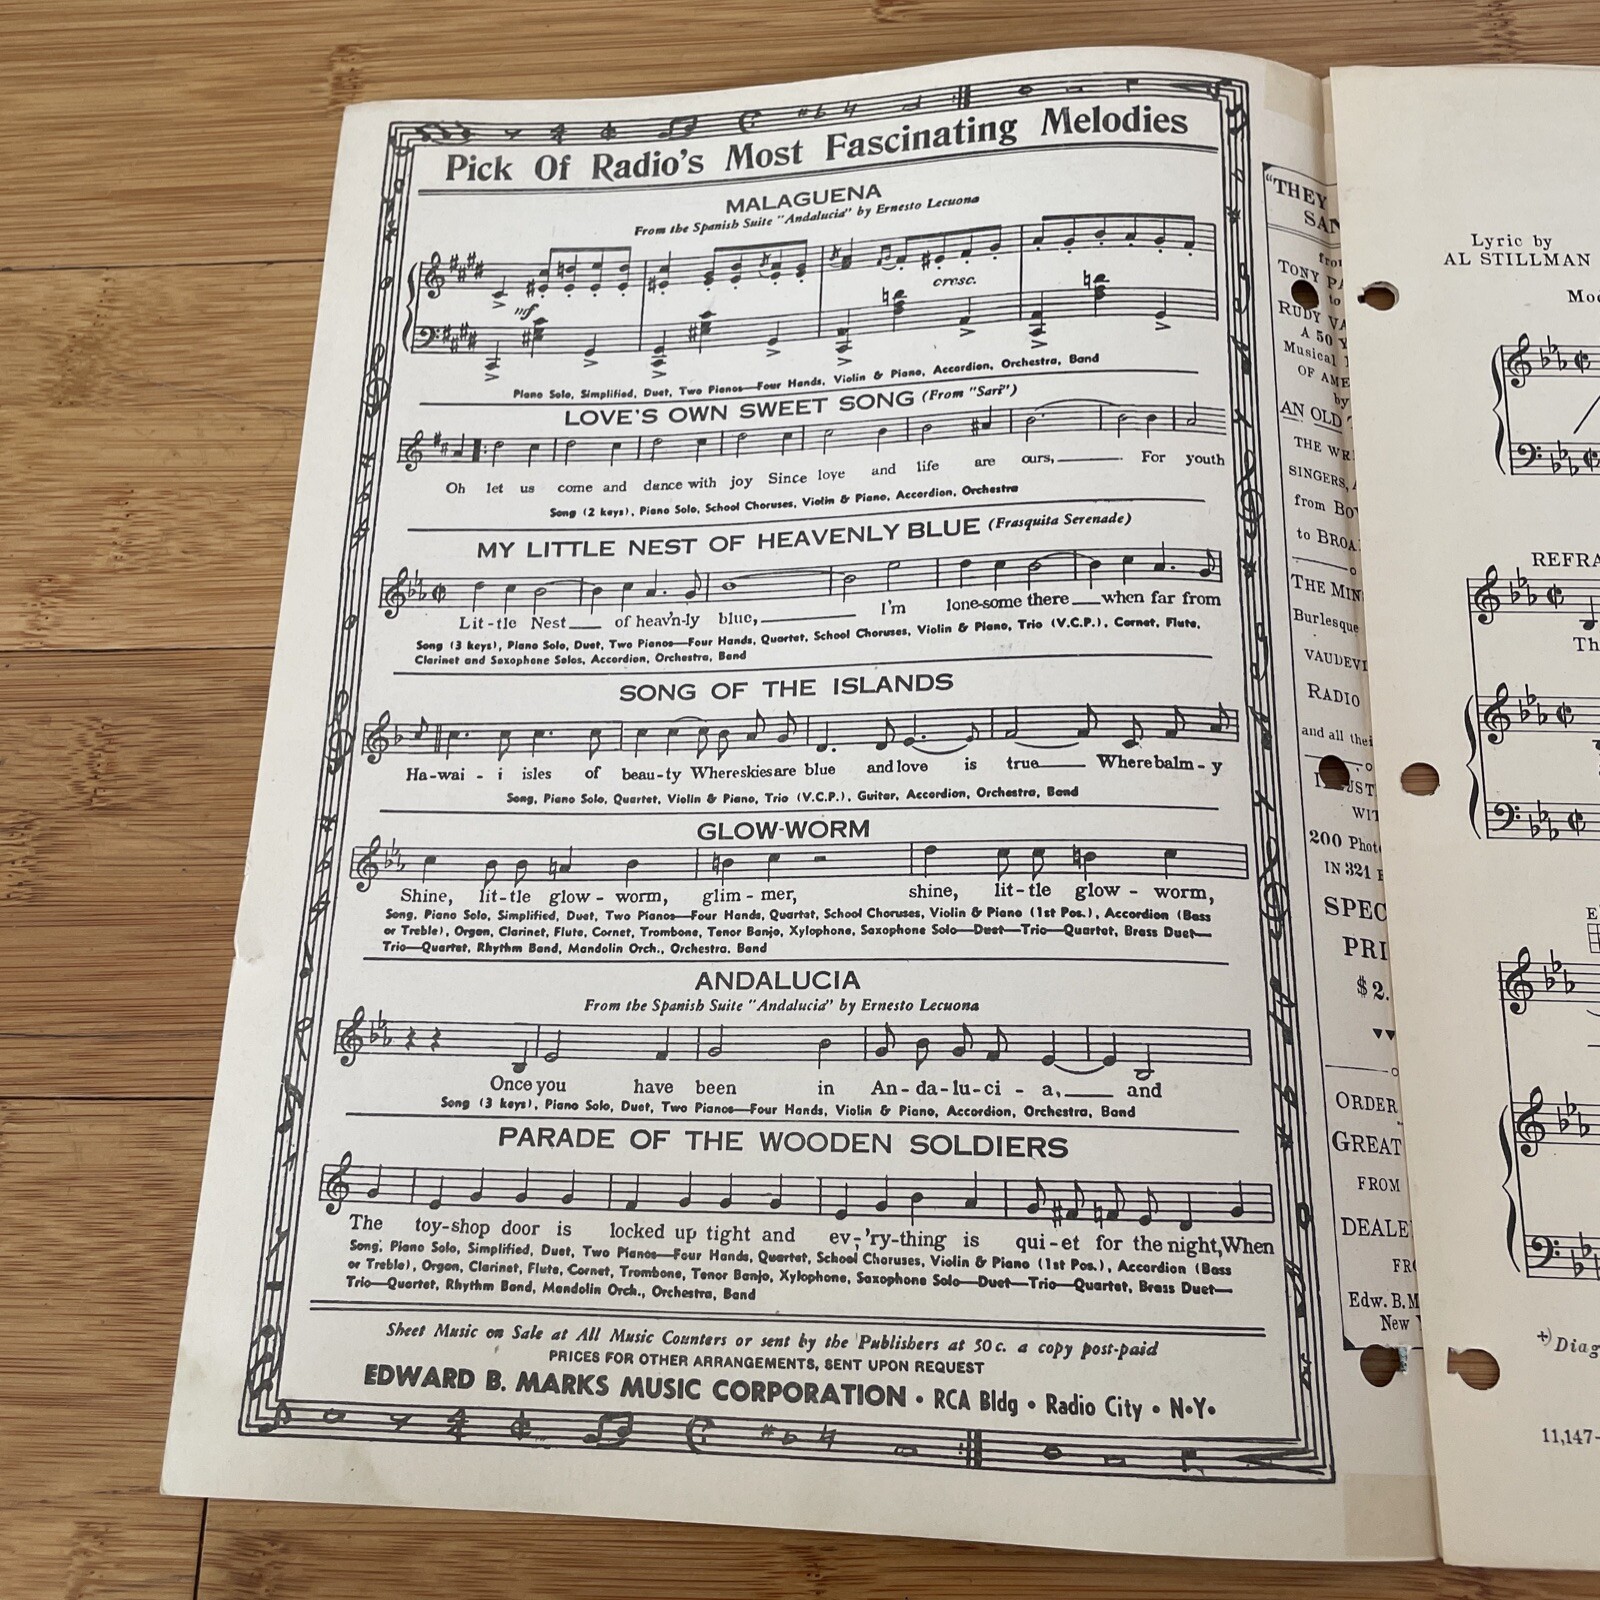 Pick Of Radio's Most Fascinating Melodies
MALAGUENA
From the Spanish Suite "Andalucia" by Ernesto Lecuona
mf
cresc.
Piano Solo, Simplified, Duet, Two Pianos—Four Hands, Violin & Piano, Accordion, Orchestra, Band
LOVE'S OWN SWEET SONG (From "Sari")
Oh let us come and dance with joy Since love and life are ours, For youth
Song (2 keys), Piano Solo, School Choruses, Violin & Piano, Accordion, Orchestra
MY LITTLE NEST OF HEAVENLY BLUE (Frasquita Serenade)
Lit-tle Nest of heav'n-ly blue, I'm lone-some there when far from
Song (3 keys), Piano Solo, Duet, Two Pianos—Four Hands, Quartet, School Choruses, Violin & Piano, Trio (V.C.P.), Cornet, Flute,
Clarinet and Saxophone Solos, Accordion, Orchestra, Band
SONG OF THE ISLANDS
Ha-wai-i isles of beau-ty Where skies are blue and love is true Where balm-y
Song, Piano Solo, Quartet, Violin & Piano, Trio (V.C.P.), Guitar, Accordion, Orchestra, Band
GLOW-WORM
Shine, lit-tle glow-worm, glim-mer, shine, lit-tle glow-worm,
Song, Piano Solo, Simplified, Duet, Two Pianos—Four Hands, Quartet, School Choruses, Violin & Piano (1st Pos.), Accordion (Bass
or Treble), Organ, Clarinet, Flute, Cornet, Trombone, Tenor Banjo, Xylophone, Saxophone Solo—Duet—Trio—Quartet, Brass Duet—
Trio—Quartet, Rhythm Band, Mandolin Orch., Orchestra. Band
ANDALUCIA
From the Spanish Suite "Andalucia" by Ernesto Lecuona
Once you have been in An-da-lu-ci-a, and
Song (3 keys), Piano Solo, Duet, Two Pianos—Four Hands, Violin & Piano, Accordion, Orchestra, Band
PARADE OF THE WOODEN SOLDIERS
The toy-shop door is locked up tight and ev-'ry-thing is qui-et for the night, When
Song, Piano Solo, Simplified, Duet, Two Pianos—Four Hands, Quartet, School Choruses, Violin & Piano (1st Pos.), Accordion (Bass
or Treble), Organ, Clarinet, Flute, Cornet, Trombone, Tenor Banjo, Xylophone, Saxophone Solo—Duet—Trio—Quartet, Brass Duet—
Trio—Quartet, Rhythm Band, Mandolin Orch., Orchestra, Band
Sheet Music on Sale at All Music Counters or sent by the Publishers at 50c. a copy post-paid
PRICES FOR OTHER ARRANGEMENTS, SENT UPON REQUEST
EDWARD B. MARKS MUSIC CORPORATION • RCA Bldg • Radio City • N•Y•
"THEY
from
TONY
to
RUDY
A 50
Musical
OF AME
by
AN OLD
THE WR
SINGERS,
from BO
to BROA
THE MIN
Burlesque
VAUDEVI
RADIO
and all thei
WIT
200 Phot
IN 321
SPEC
PRI
$2.
ORDER
GREAT
FROM
DEALE
FR
Edw. B. M
New
Lyric by
AL STILLMAN
Mod
REFRA
Th
Diag
11,147-